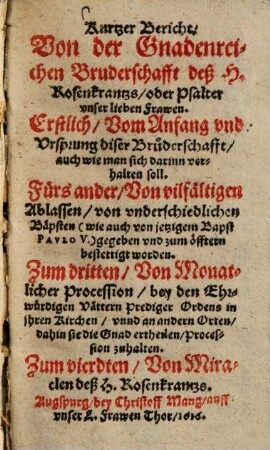 Kurtzer Bericht/
Von der Gnadenrei-
chen Bruderschafft deß H.
Rosenkrantzs/oder Psalter
vnser lieben Frawen.
Erstlich/Vom Anfang vnd
Vrsprung diser Brüderschafft/
auch wie man sich darinn ver-
halten soll.
Fürs ander/Von vilfältigen
Ablassen/von vnderschiedlichen
Bäpsten (wie auch von jetzigem Bapst
PAVLO V.) gegeben vnd zum öfftern
bestettigt worden.
Zum dritten/Von Monat-
licher Procession/bey den Ehr-
würdigen Vättern Prediger Ordens in
jhren Kirchen/vnnd an andern Orten/
dahin sie die Gnad ertheilen/Proces-
sion zuhalten.
Zum vierdten/Von Mira-
clen deß H. Rosenkrantzs.
Augspurg/bey Christoff Mang/auff
vnser L. Frawen Thor/1616.